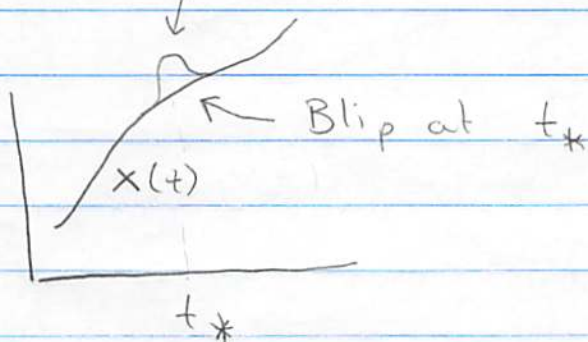 Blip at t_*
x(t)
t_*